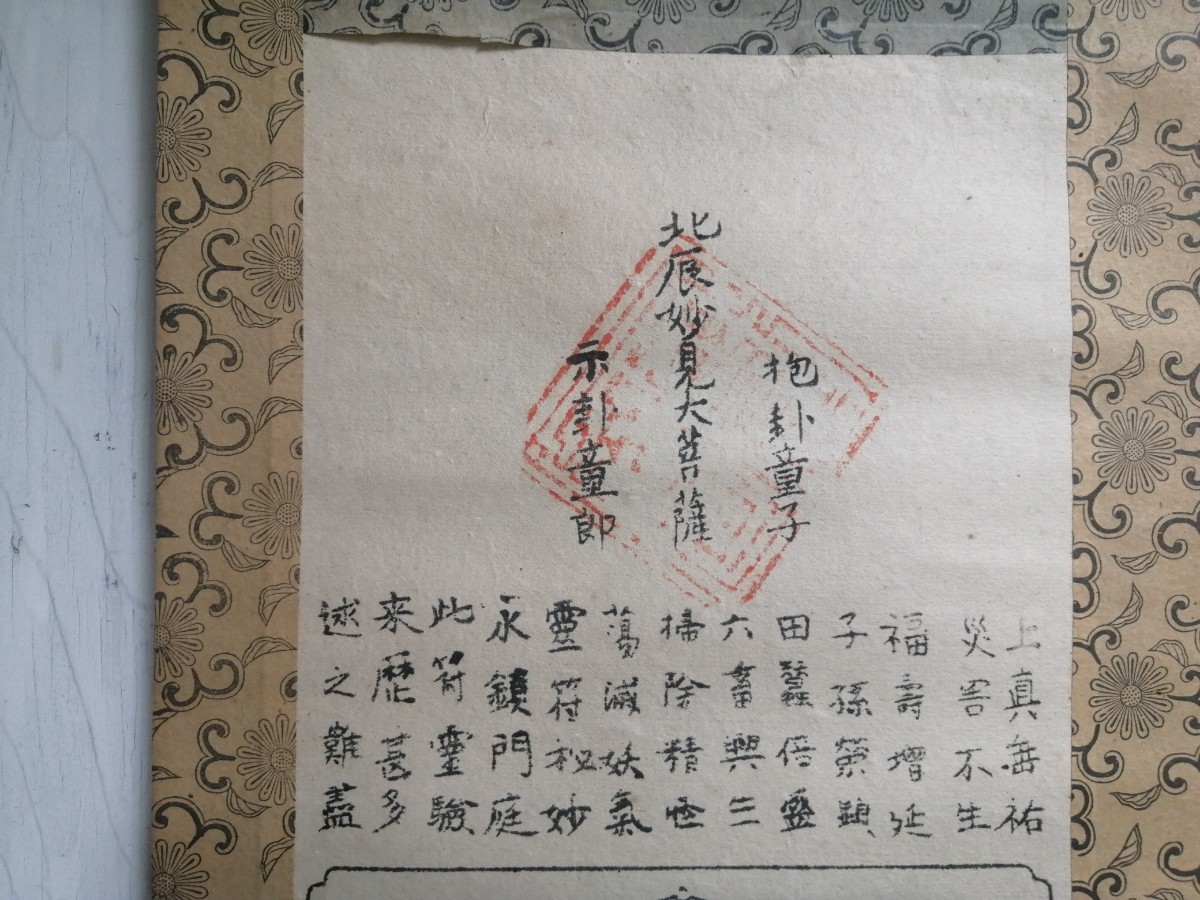 抱卦童子
北辰妙見大菩薩
示卦童郎
上真垂祐
災害不生
福壽增延
子孫榮顕
田蠶倍盛
六畜興
掃除精怪
蕩滅妖氣
靈符秘妙
永鎮門庭
此符靈驗
来歴甚多
述之難盡